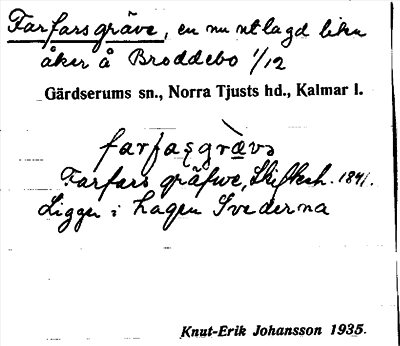 Farfarsgräve, en nu utlagd liten
åker å Broddebo 1/12
Gärdserums sn., Norra Tjusts hd., Kalmar l.
farfasgrævə
Farfars gräfwe, Skifftesh. 1841.
Ligger i hagen Svederna
Knut-Erik Johansson 1935.